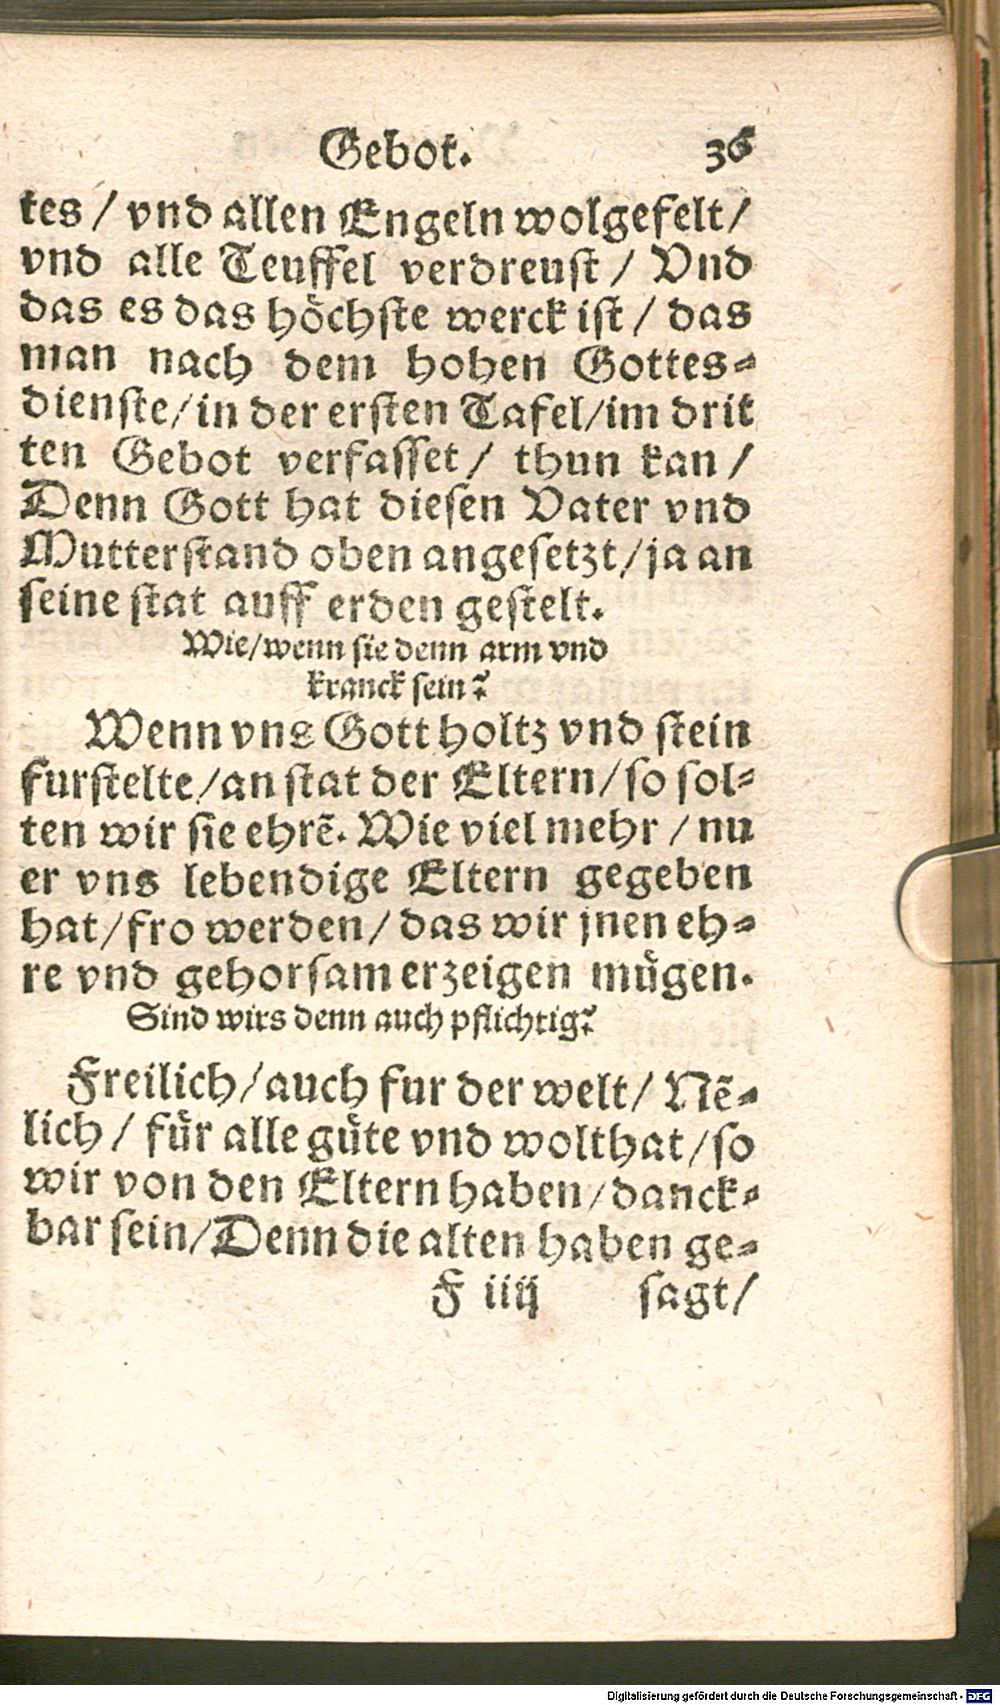 Gebot. 36
tes / vnd allen Engeln wolgefelt /
vnd alle Teuffel verdreust / Vnd
das es das höchste werck ist / das
man nach dem hohen Gottes-
dienste / in der ersten Tafel / im drit
ten Gebot verfasset / thun kan /
Denn Gott hat diesen Vater vnd
Mutterstand oben angesetzt / ja an
seine stat auff erden gestelt.
Wie / wenn sie denn arm vnd
kranck sein?
Wenn vns Gott holtz vnd stein
furstelte / an stat der Eltern / so sol-
ten wir sie ehrē. Wie viel mehr / nu
er vns lebendige Eltern gegeben
hat / fro werden / das wir jnen eh-
re vnd gehorsam erzeigen mügen.
Sind wirs denn auch pflichtig?
Freilich / auch fur der welt / Nē-
lich / für alle güte vnd wolthat / so
wir von den Eltern haben / danck-
bar sein / Denn die alten haben ge-
F iiij sagt /
Digitalisierung gefördert durch die Deutsche Forschungsgemeinschaft - DFG